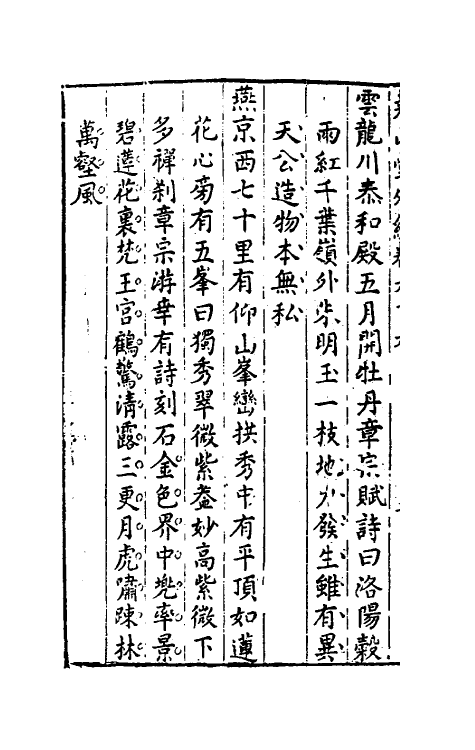 雲龍川泰和殿五月開牡丹章宗賦詩曰洛陽穀
雨紅千葉嶺外朱明玉一枝地力發生雖有異
天公造物本無私
燕京西七十里有仰山峯巒拱秀中有平頂如蓮
花心旁有五峯曰獨秀翠微紫盖妙高紫微下
多禪刹章宗游幸有詩刻石金色界中兠率景
碧蓮花裏梵王宫鶴驚清露三更月虎嘯踈林
萬壑風